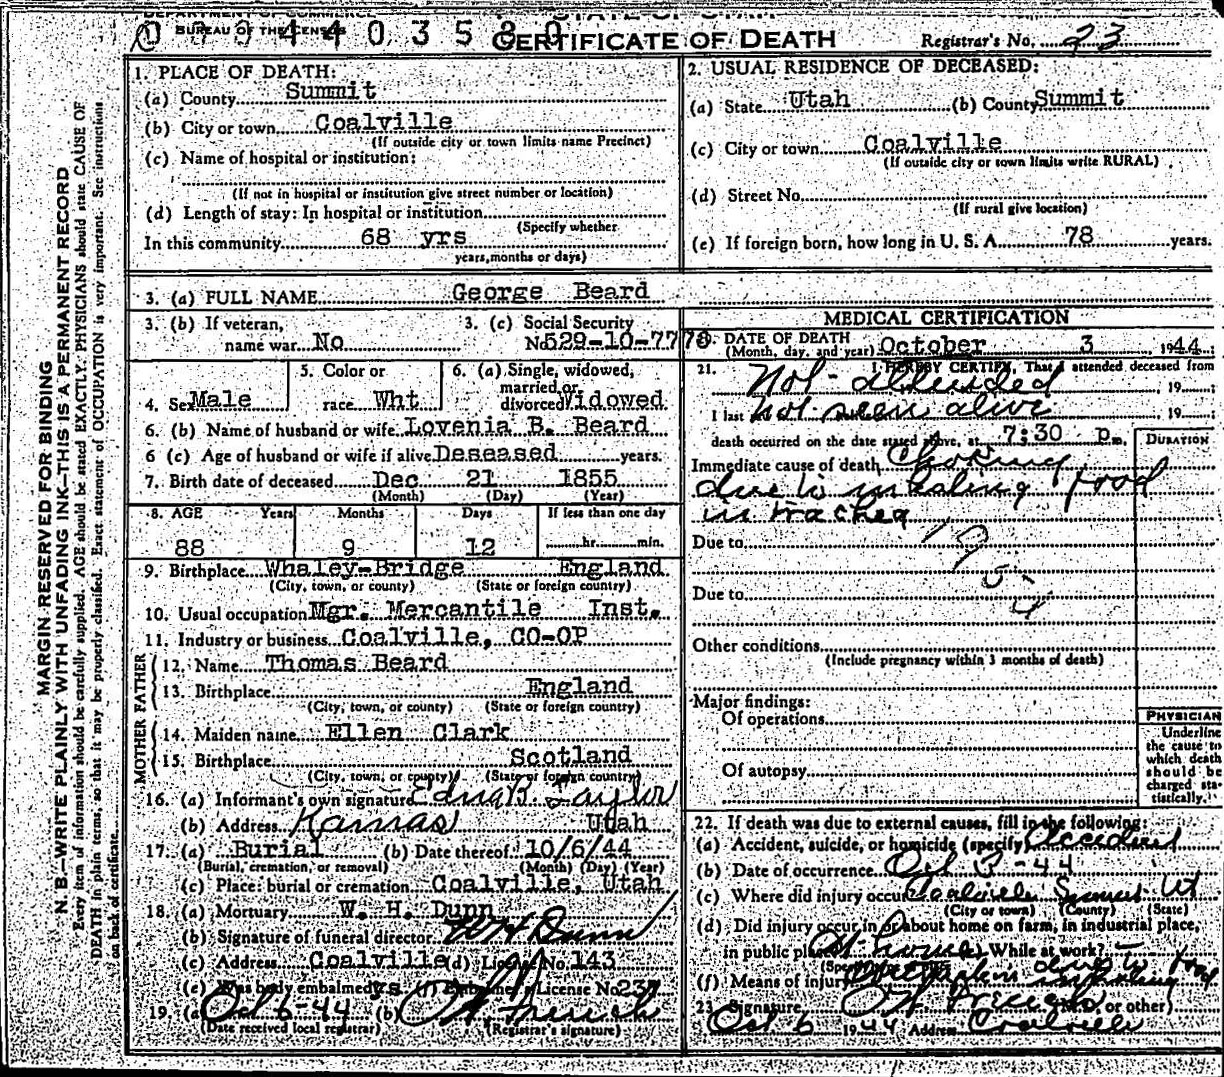 DEPARTMENT OF COMMERCE
BUREAU OF THE CENSUS
STATE OF UTAH
CERTIFICATE OF DEATH
Registrar's No. 23
MARGIN RESERVED FOR BINDING
N. B.—WRITE PLAINLY WITH UNFADING INK—THIS IS A PERMANENT RECORD
Every item of information should be carefully supplied. AGE should be stated EXACTLY. PHYSICIANS should state CAUSE OF
DEATH in plain terms, so that it may be properly classified. Exact statement of OCCUPATION is very important. See instructions
on back of certificate.
1. PLACE OF DEATH:
(a) County Summit
(b) City or town Coalville
(If outside city or town limits name Precinct)
(c) Name of hospital or institution:
(If not in hospital or institution give street number or location)
(d) Length of stay: In hospital or institution
(Specify whether
In this community 68 yrs
years, months or days)
2. USUAL RESIDENCE OF DECEASED:
(a) State Utah (b) County Summit
(c) City or town Coalville
(If outside city or town limits write RURAL)
(d) Street No.
(If rural give location)
(e) If foreign born, how long in U. S. A. 78 years.
3. (a) FULL NAME George Beard
3. (b) If veteran, name war No
3. (c) Social Security No 529-10-7778
4. Sex Male
5. Color or race Wht
6. (a) Single, widowed, married, or divorced Widowed
6. (b) Name of husband or wife Lovenia B. Beard
6 (c) Age of husband or wife if alive Deseased years.
7. Birth date of deceased Dec 21 1855
(Month) (Day) (Year)
8. AGE Years Months Days If less than one day
88 9 12 hr. min.
9. Birthplace Whaley-Bridge England
(City, town, or county) (State or foreign country)
10. Usual occupation Mgr. Mercantile Inst.
11. Industry or business Coalville, CO-OP
FATHER
12. Name Thomas Beard
13. Birthplace England
(City, town, or county) (State or foreign country)
MOTHER
14. Maiden name Ellen Clark
15. Birthplace Scotland
(City, town, or county) (State or foreign country)
16. (a) Informant's own signature Edna B. Taylor
(b) Address Kamas Utah
17. (a) Burial (b) Date thereof 10/6/44
(Burial, cremation, or removal) (Month) (Day) (Year)
(c) Place: burial or cremation Coalville, Utah
18. (a) Mortuary W. H. Dunn
(b) Signature of funeral director W H Dunn
(c) Address Coalville (d) License No. 143
(e) Was body embalmed ys (f) Embalmer's License No
19. (a) Oct 6-44 (b)
(Date received local registrar) (Registrar's signature)
MEDICAL CERTIFICATION
20. DATE OF DEATH
(Month, day, and year) October 3 1944
21. I HEREBY CERTIFY, That I attended deceased from
Not attended 19
I last not seen alive 19
death occurred on the date stated above, at 7:30 p.m.
DURATION
Immediate cause of death Choking
due to inhaling food
in trachea
Due to
Due to
Other conditions
(Include pregnancy within 3 months of death)
Major findings:
Of operations
Of autopsy
PHYSICIAN
Underline
the cause to
which death
should be
charged sta-
tistically.
22. If death was due to external causes, fill in the following:
(a) Accident, suicide, or homicide (specify) Accident
(b) Date of occurrence Oct 3-44
(c) Where did injury occur Coalville Summit Ut
(City or town) (County) (State)
(d) Did injury occur in or about home on farm, in industrial place,
in public place At home While at work? —
(f) Means of injury due to inhaling food
23. Signature or other)
Oct 6 1944 Address Coalville